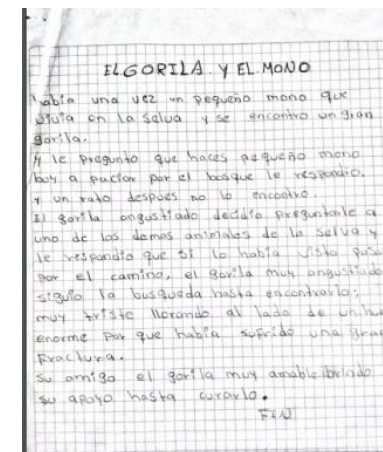 EL GORILA Y EL MONO
Había una vez un pequeño mono que
vivia en la Selva y se encontro un gran
gorila.
Y le pregunto que haces pequeño mono
boy a paciar por el bosque le respondio.
Y un rato despues no lo encontro.
El gorila angustiado decidio preguntarle a
uno de los demas animales de la Selva y
le respondio que si lo había visto
por el camino, el gorila muy angustiado
siguio la busqueda hasta encontrarlo;
muy triste llorando al lado de un
enorme por que había sufrido una gran
Fractura.
Su amigo el gorila muy amable
su apoyo hasta curarlo.
FIN